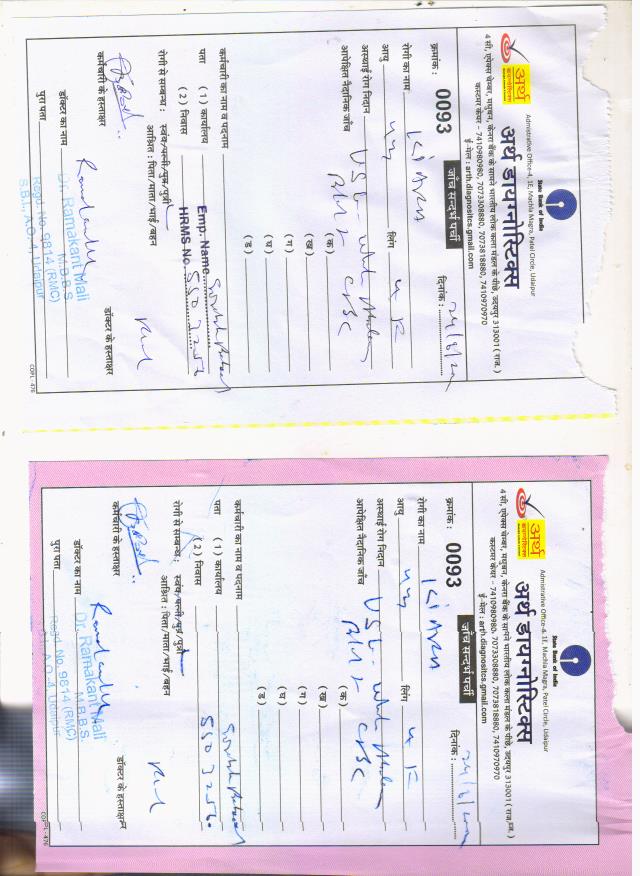 State Bank of India
अर्थ
डायग्नोस्टिक्स
Admistrative Office-4, 1E, Machla Magra, Patel Circle, Udaipur
अर्थ डायग्नोस्टिक्स
4 सी, एपेक्स चेम्बर, मधुबन, केनरा बैंक के सामने भारतीय लोक कला मंडल के पीछे, उदयपुर 313001 (राज.)
कस्टमर केयर - 7410980980, 7073308880, 7073818880, 7410970970
ई-मेल : arth.diagnositcs.gmail.com
क्रमांक : 0093 जाँच सन्दर्भ पर्ची दिनांक :
रोगी का नाम
आयु लिंग
अस्थाई रोग निदान USG - whole
आपेक्षित नैदानिक जाँच (क) CBC
(ख)
(ग)
(घ)
(ड)
कर्मचारी का नाम व पदनाम Emp. Name
पता (1) कार्यालय HRMS No.
(2) निवास
रोगी से सम्बन्ध : स्वंय/पत्नी/पुत्र/पुत्री
आश्रित : पिता/माता/भाई/बहन
कर्मचारी के हस्ताक्षर डॉक्टर के हस्ताक्षर
डॉक्टर का नाम Dr. Ramakant Mali
M.B.B.S
Regd. No. 9814 (RMC)
पुरा पता S.B.I., A.O.-4, Udaipur
COPL-476
State Bank of India
अर्थ
डायग्नोस्टिक्स
Admistrative Office-4, 1E, Machla Magra, Patel Circle, Udaipur
अर्थ डायग्नोस्टिक्स
4 सी, एपेक्स चेम्बर, मधुबन, केनरा बैंक के सामने भारतीय लोक कला मंडल के पीछे, उदयपुर 313001 (राज.)
कस्टमर केयर - 7410980980, 7073308880, 7073818880, 7410970970
ई-मेल : arth.diagnositcs.gmail.com
क्रमांक : 0093 जाँच सन्दर्भ पर्ची दिनांक :
रोगी का नाम
आयु लिंग
अस्थाई रोग निदान USG - whole
आपेक्षित नैदानिक जाँच (क) CBC
(ख)
(ग)
(घ)
(ड)
कर्मचारी का नाम व पदनाम
पता (1) कार्यालय
(2) निवास
रोगी से सम्बन्ध : स्वंय/पत्नी/पुत्र/पुत्री
आश्रित : पिता/माता/भाई/बहन
कर्मचारी के हस्ताक्षर डॉक्टर के हस्ताक्षर
डॉक्टर का नाम Dr. Ramakant Mali
M.B.B.S.
Regd. No. 9814 (RMC)
पुरा पता A.O.-4, Udaipur
COPL-476